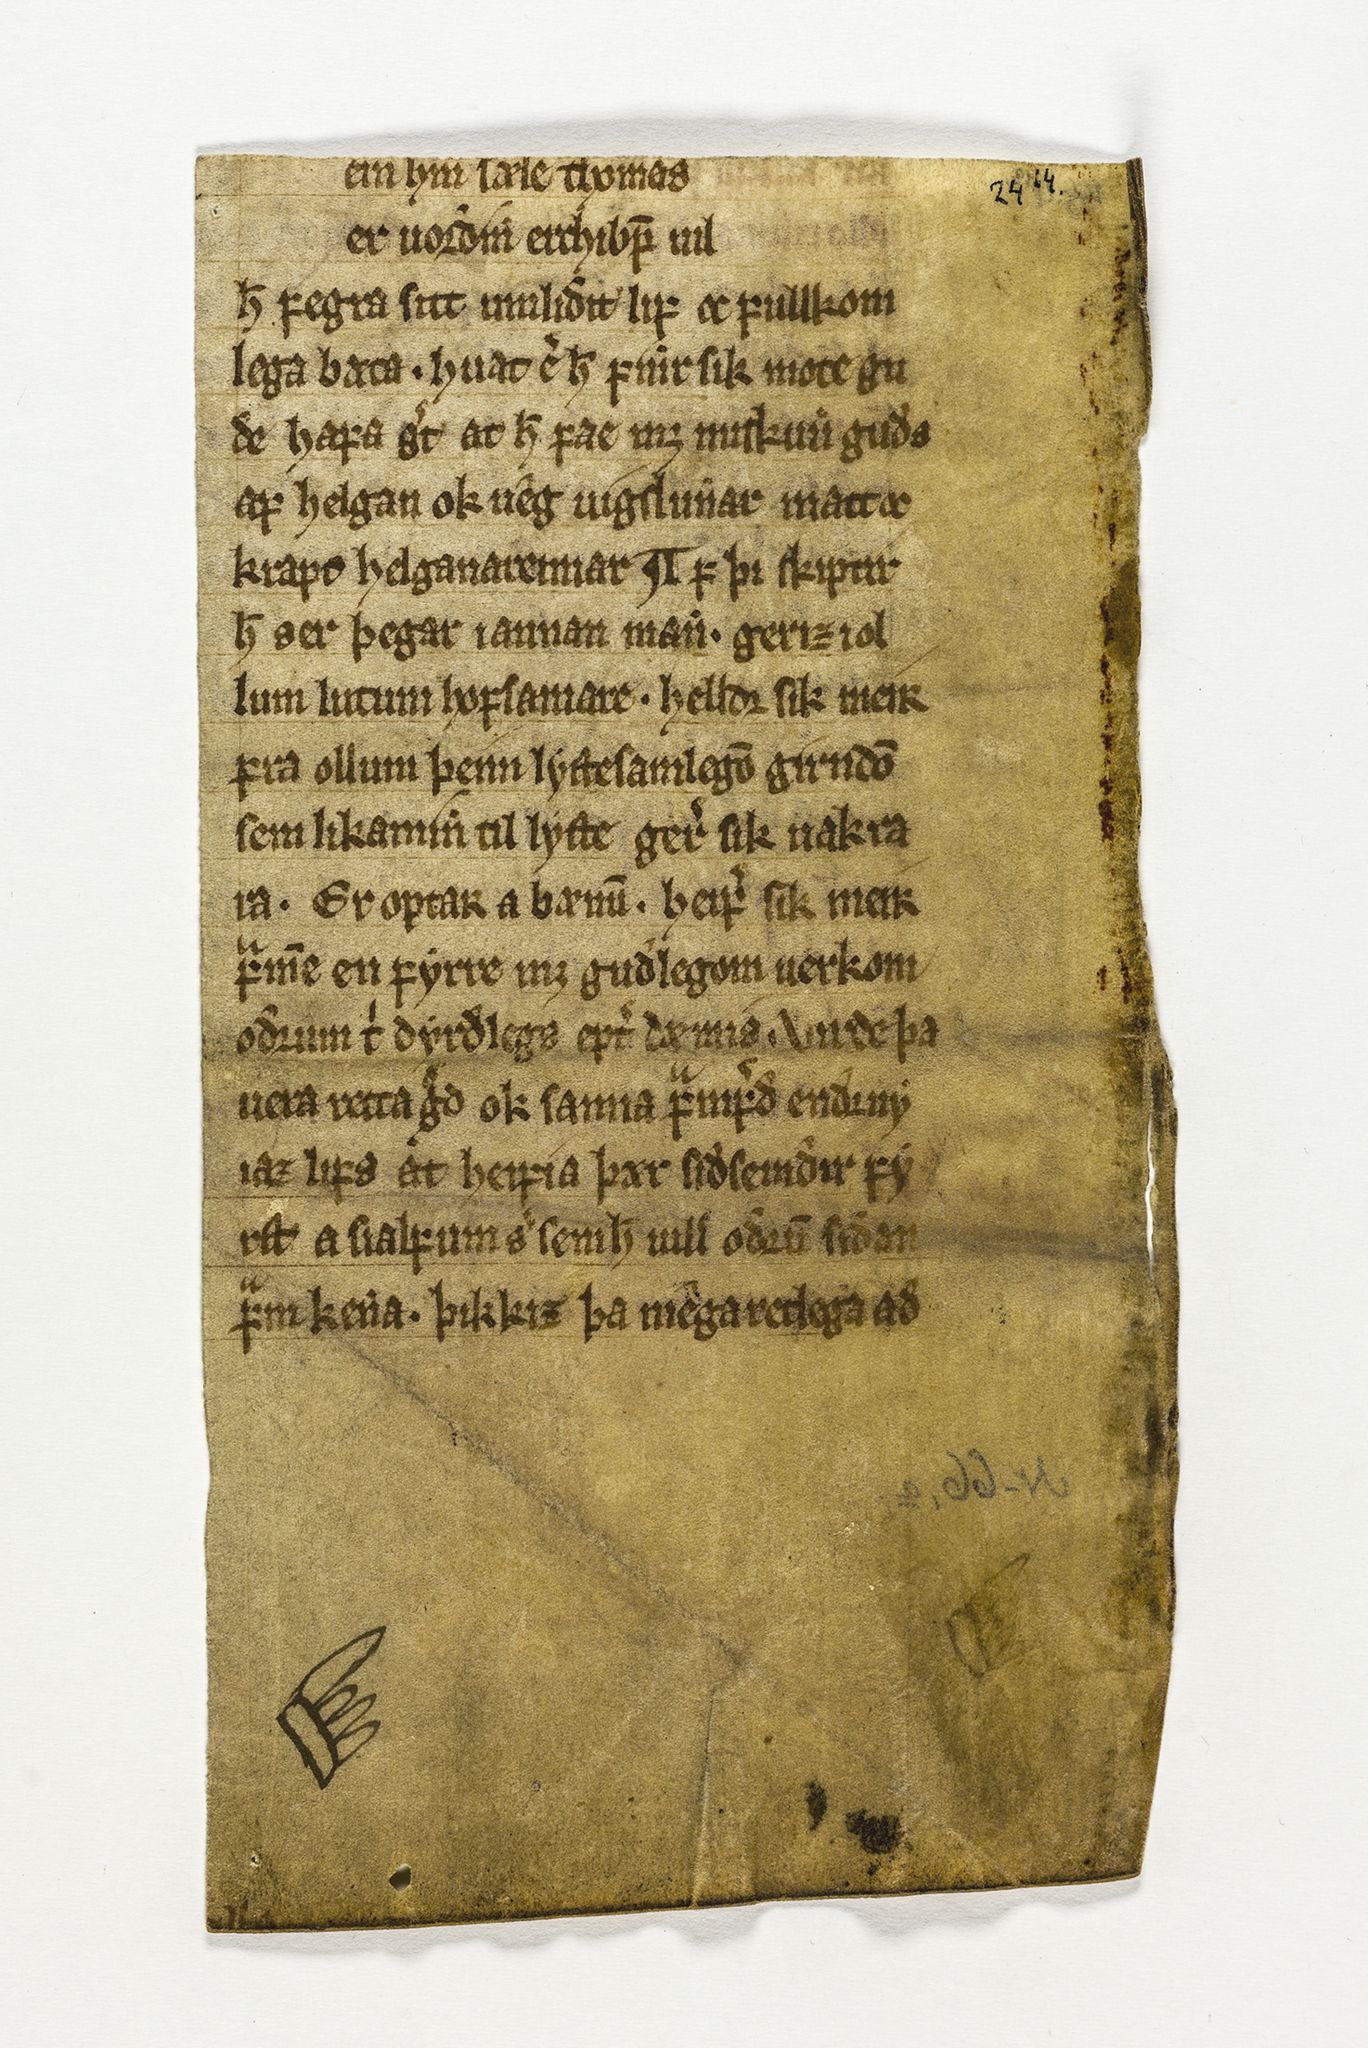 24 14.
ein hin sæle thomas
er uordin̄ erchibp̄ uil
h̄ fegra sitt umlidit lif ꝛ fullkom
lega bæta · huat er h̄ finnr sik mote gu
de hafa gͥt at h̄ fae mꝫ miskun̄ guds
af helgan ok ueg uigslun̄ar matt ꝛ
krapt helganarennar ¶ f þi skiptir
h̄ ser þegar i annan man̄ · geriz i ol
lum lutum hofsamare · helldꝛ sik meiʀ
fra ollum þeim lystesamlegō girndō
sem likamin̄ til lyste gerͥ sik uakra
ra · Er optaʀ a bænū · heifͥ sik meiʀ
fᷓm̄e en fyrre mꝫ gudlegom uerkom
odꝛum t́ dyrdlegs eptͥ dæmis · Uirde þa
uera retta gͥd ok sanna fᷓmfͥd endꝛny
iaz lifs at heifia þær sidsemdir fy
rst a sialfum sͥ sem h̄ uill odꝛū sidan
fᷓm ken̄a · þikkiz þa mega retlega ad
N-66, a